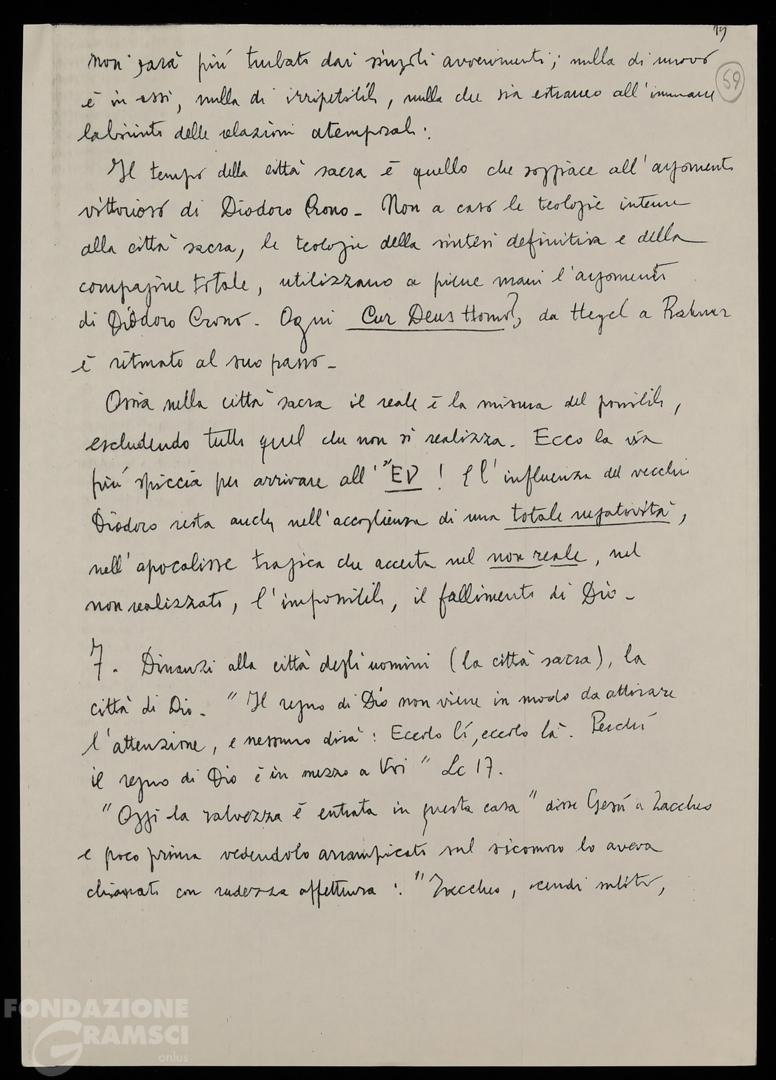 19
59
non sarà più turbato dai singoli avvenimenti; nulla di nuovo
è in essi, nulla di irripetibile, nulla che sia estraneo all'immane
labirinto delle relazioni atemporali.
Il tempo della città sacra è quello che soggiace all'argomento
vittorioso di Diodoro Crono. Non a caso le teologie interne
alla città sacra, le teologie della sintesi definitiva e della
compagine totale, utilizzano a piene mani l'argomento
di Diodoro Crono. Ogni Cur Deus Homo?, da Hegel a Rahner
è ritmato al suo passo.
Ossia nella città sacra il reale è la misura del possibile,
escludendo tutto quel che non si realizza. Ecco la via
più spiccia per arrivare all' ! E l'influenza del vecchio
Diodoro resta anche nell'accoglienza di una totale negatività,
nell'apocalisse tragica che accerta nel non reale, nel
non realizzato, l'impossibile, il fallimento di Dio.
7. Dinanzi alla città degli uomini (la città sacra), la
città di Dio. "Il regno di Dio non viene in modo da attirare
l'attenzione, e nessuno dirà: Eccolo lí, eccolo là. Perché
il regno di Dio è in mezzo a Voi" Lc 17.
"Oggi la salvezza è entrata in questa casa" disse Gesú a Zaccheo
e poco prima vedendolo arrampicato sul sicomoro lo aveva
chiamato con rudezza affettuosa: "Zaccheo, scendi subito,
FONDAZIONE
GRAMSCI
onlus